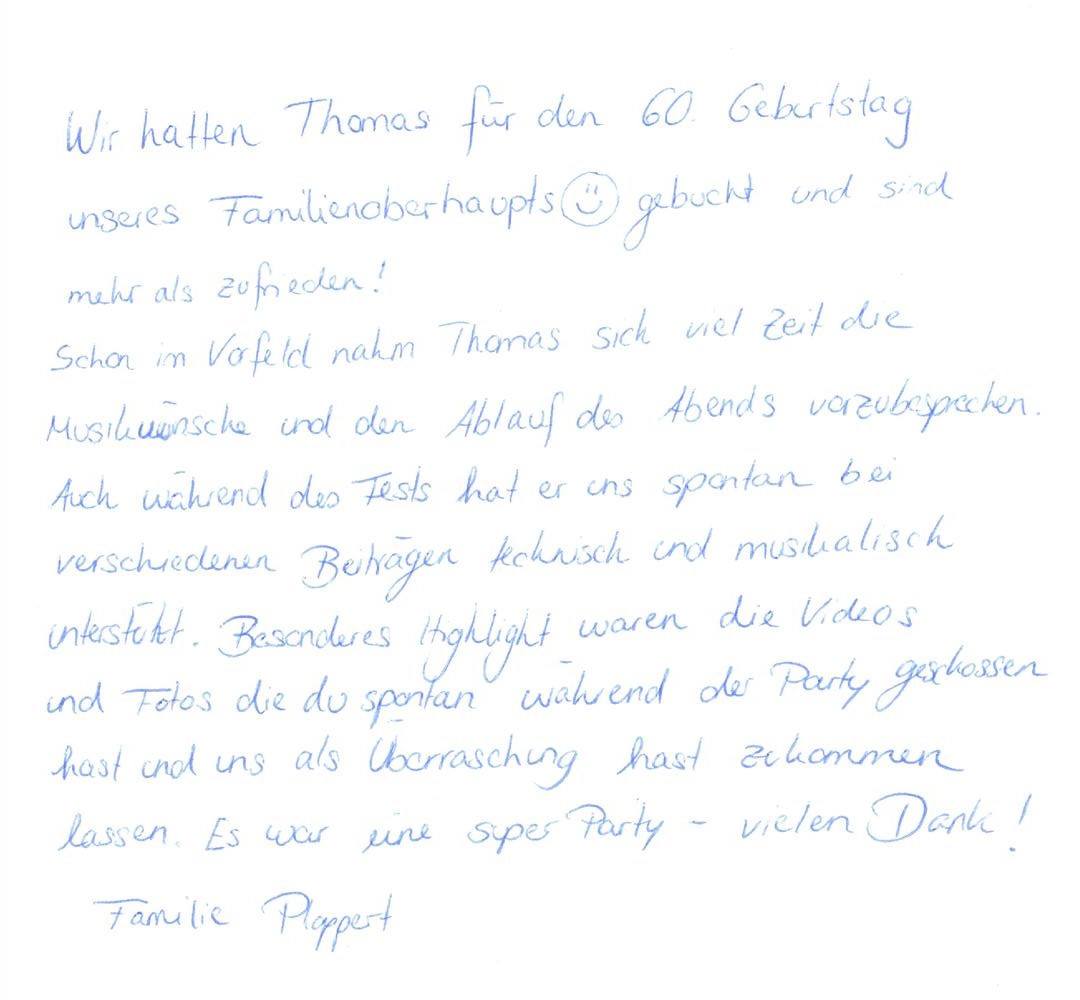 Wir hatten Thomas für den 60. Geburtstag
unseres Familienoberhaupts ☺ gebucht und sind
mehr als zufrieden!
Schon im Vorfeld nahm Thomas sich viel Zeit die
Musikwünsche und den Ablauf des Abends vorzubesprechen.
Auch während des Fests hat er uns spontan bei
verschiedenen Beiträgen technisch und musikalisch
unterstützt. Besonderes Highlight waren die Videos
und Fotos die du spontan während der Party geschossen
hast und uns als Überraschung hast zukommen
lassen. Es war eine super Party - vielen Dank!
Familie Plappert